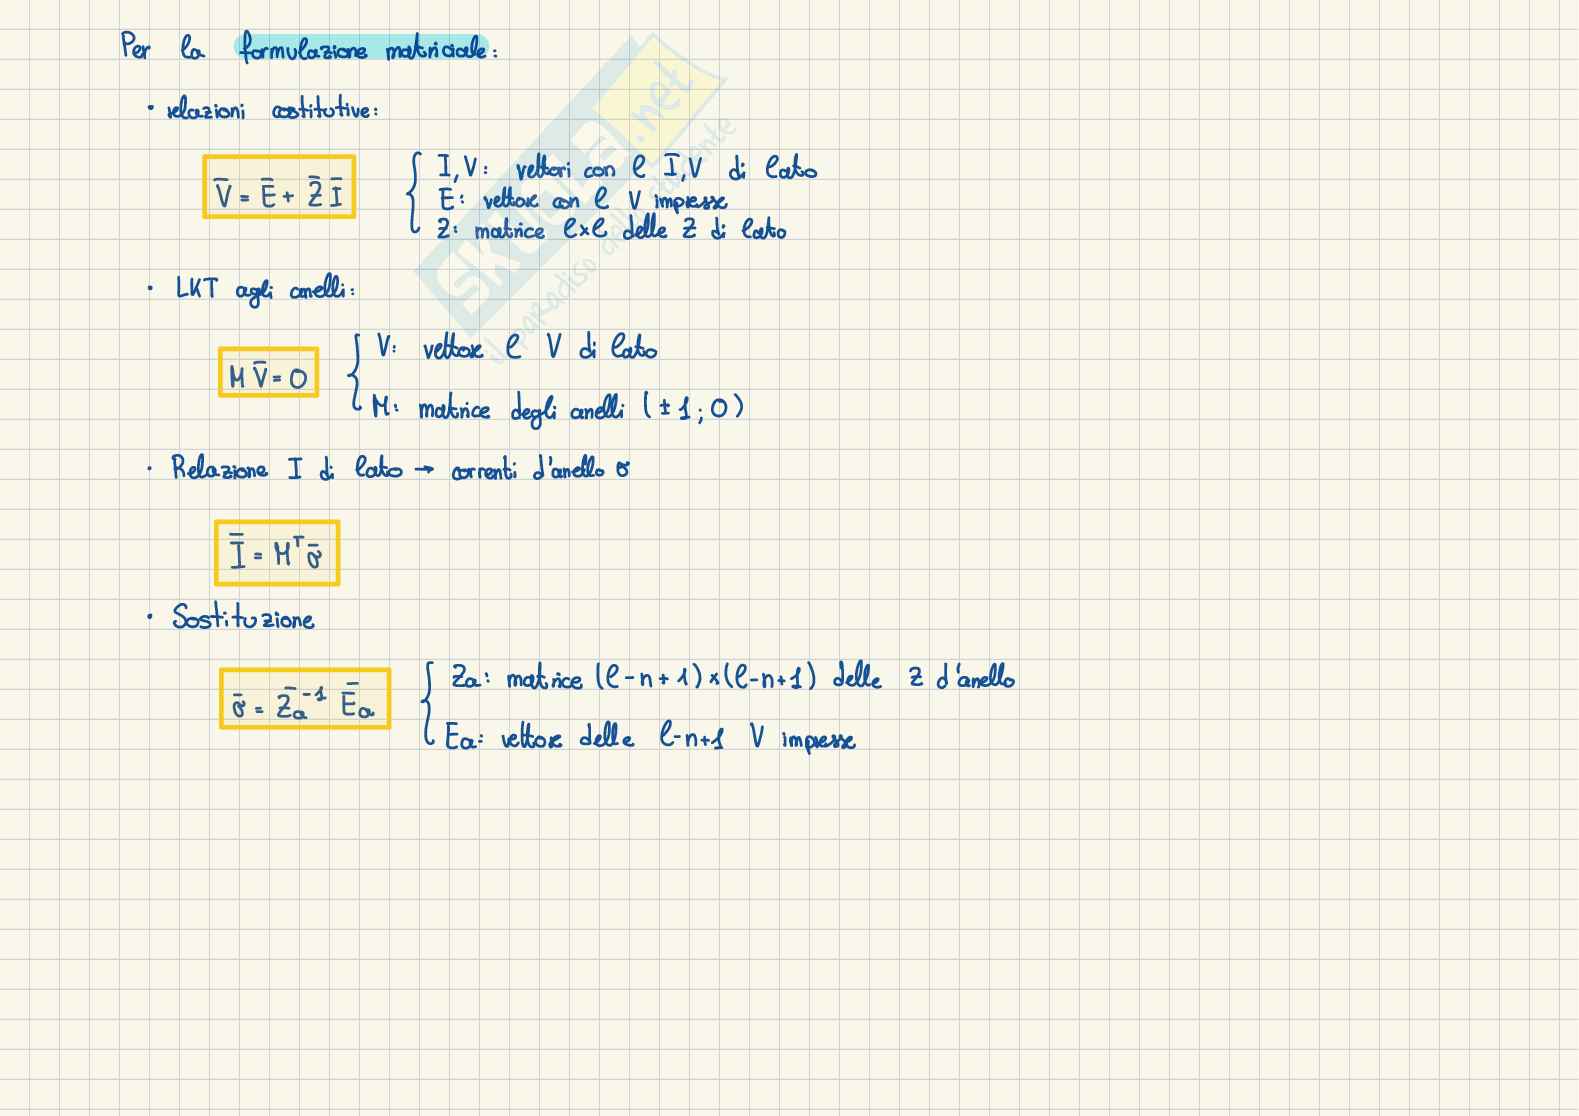 Per la formulazione matriciale:
• relazioni costitutive:
V̅ = E̅ + Z̅ I̅
I, V: vettori con ℓ I̅, V di lato
E: vettore con ℓ V impresse
Z: matrice ℓxℓ delle Z di lato
• LKT agli anelli:
M V̅ = 0
V: vettore ℓ V di lato
M: matrice degli anelli (±1; 0)
• Relazione I di lato → correnti d'anello σ
I̅ = Mᵀ σ̅
• Sostituzione
σ̅ = Z̅a⁻¹ E̅a
Za: matrice (ℓ-n+1)x(ℓ-n+1) delle Z d'anello
Ea: vettore delle ℓ-n+1 V impresse
skuola.net
il paradiso dello studente